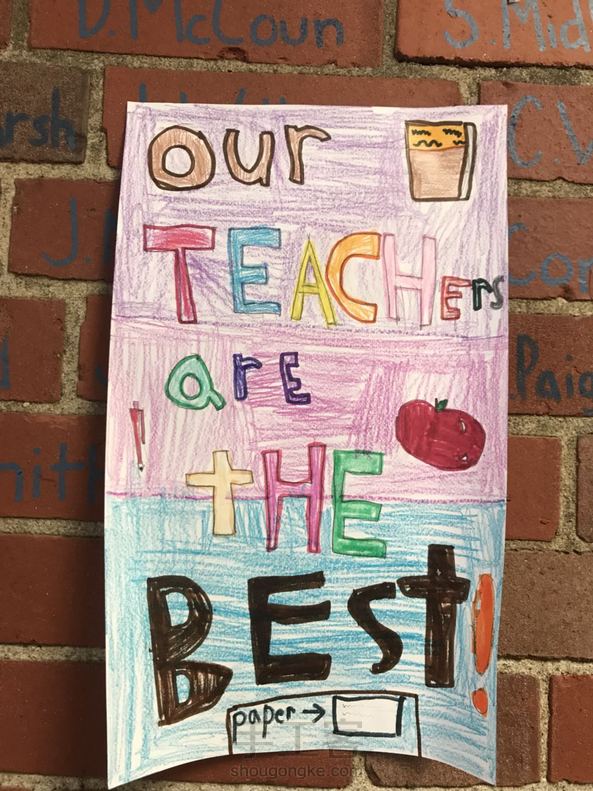 D. McCoun
S. Midl
arsh
C. W
J. 
Con
Paig
mith
Our
TEACHers
are
tHE
BEst!
paper →
手工客
shougongke.com